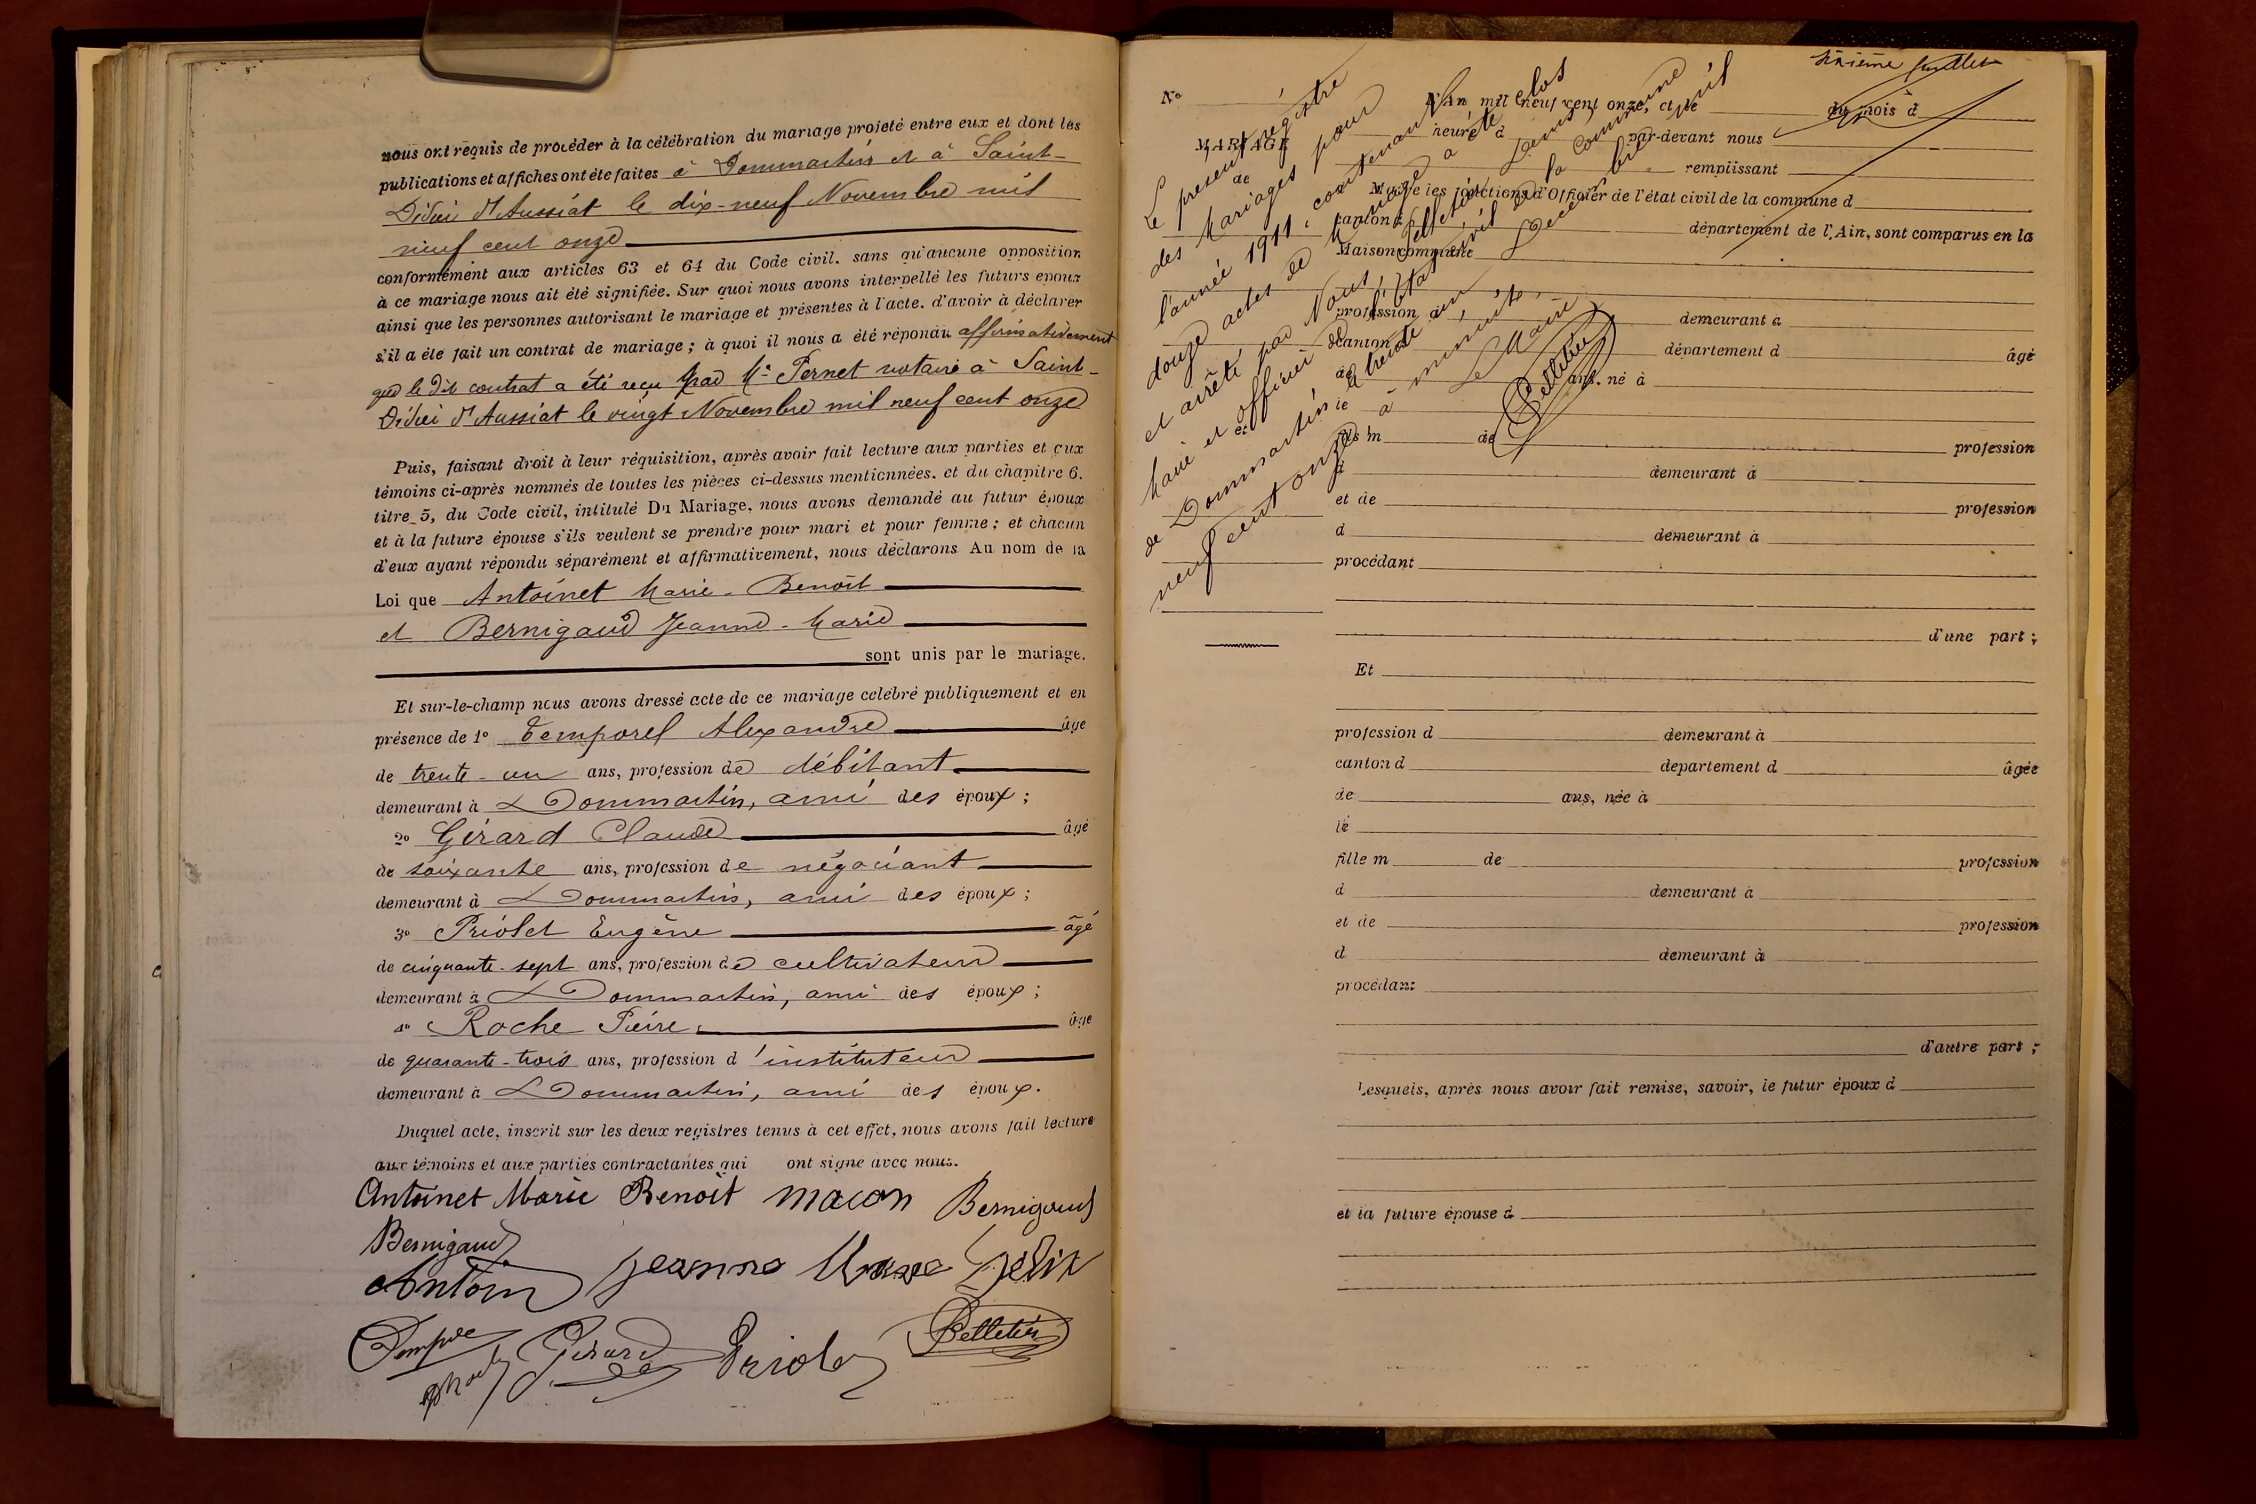 nous ont requis de procéder à la célébration du mariage projeté entre eux et dont les
publications et affiches ont été faites à Dommartin et à Saint-
Didier d'Aussiat le dix-neuf Novembre mil
neuf cent onze
conformément aux articles 63 et 64 du Code civil, sans qu'aucune opposition
à ce mariage nous ait été signifiée. Sur quoi nous avons interpellé les futurs époux
ainsi que les personnes autorisant le mariage et présentes à l'acte, d'avoir à déclarer
s'il a été fait un contrat de mariage; à quoi il nous a été répondu affirmativement
que le dit contrat a été reçu par Me Pernet notaire à Saint-
Didier d'Aussiat le vingt Novembre mil neuf cent onze
Puis, faisant droit à leur réquisition, après avoir fait lecture aux parties et aux
témoins ci-après nommés de toutes les pièces ci-dessus mentionnées, et du chapitre 6,
titre 5, du Code civil, intitulé Du Mariage, nous avons demandé au futur époux
et à la future épouse s'ils veulent se prendre pour mari et pour femme; et chacun
d'eux ayant répondu séparément et affirmativement, nous déclarons Au nom de la
Loi que Antoinet Marie-Benoît
et Bernigaud Jeanne-Marie
sont unis par le mariage.
Et sur-le-champ nous avons dressé acte de ce mariage célébré publiquement et en
présence de 1o Temporel Alexandre âgé
de trente-un ans, profession de débitant
demeurant à Dommartin, ami des époux;
2o Gérard Claude âgé
de soixante ans, profession de négociant
demeurant à Dommartin, ami des époux;
3o Priolet Eugène âgé
de cinquante-sept ans, profession de cultivateur
demeurant à Dommartin, ami des époux;
4o Roche Pierre âgé
de quarante-trois ans, profession d'instituteur
demeurant à Dommartin, ami des époux.
Duquel acte, inscrit sur les deux registres tenus à cet effet, nous avons fait lecture
aux témoins et aux parties contractantes qui ont signé avec nous.
Antoinet Marie Benoit macon Bernigaud
Bernigaud
Antoin Jeanne Marie
Gérard Priolet Pelletier
sixième feuillet
No
L'an mil neuf cent onze, et le du mois d
MARIAGE
heure d par-devant nous
de
remplissant
Maire les fonctions d'Officier de l'état civil de la commune d
canton d département de l'Ain, sont comparus en la
Maison commune
profession d demeurant à
canton d département d âgé
de ans, né à
le
et
fils m de profession
d demeurant à
et de profession
d demeurant à
procédant
d'une part;
Et
profession d demeurant à
canton d département d âgée
de ans, née à
le
fille m de profession
d demeurant à
et de profession
d demeurant à
procédant
d'autre part;
Lesquels, après nous avoir fait remise, savoir, le futur époux d
et la future épouse d
Le présent registre
des Mariages pour
l'année 1911, contenant
douze actes de Mariage a été clos
et arrêté par Nous, Pelletier
Maire et officier de l'état civil de la commune
de Dommartin le trente un Décembre mil
neuf cent onze à minuit.
Le Maire
Pelletier